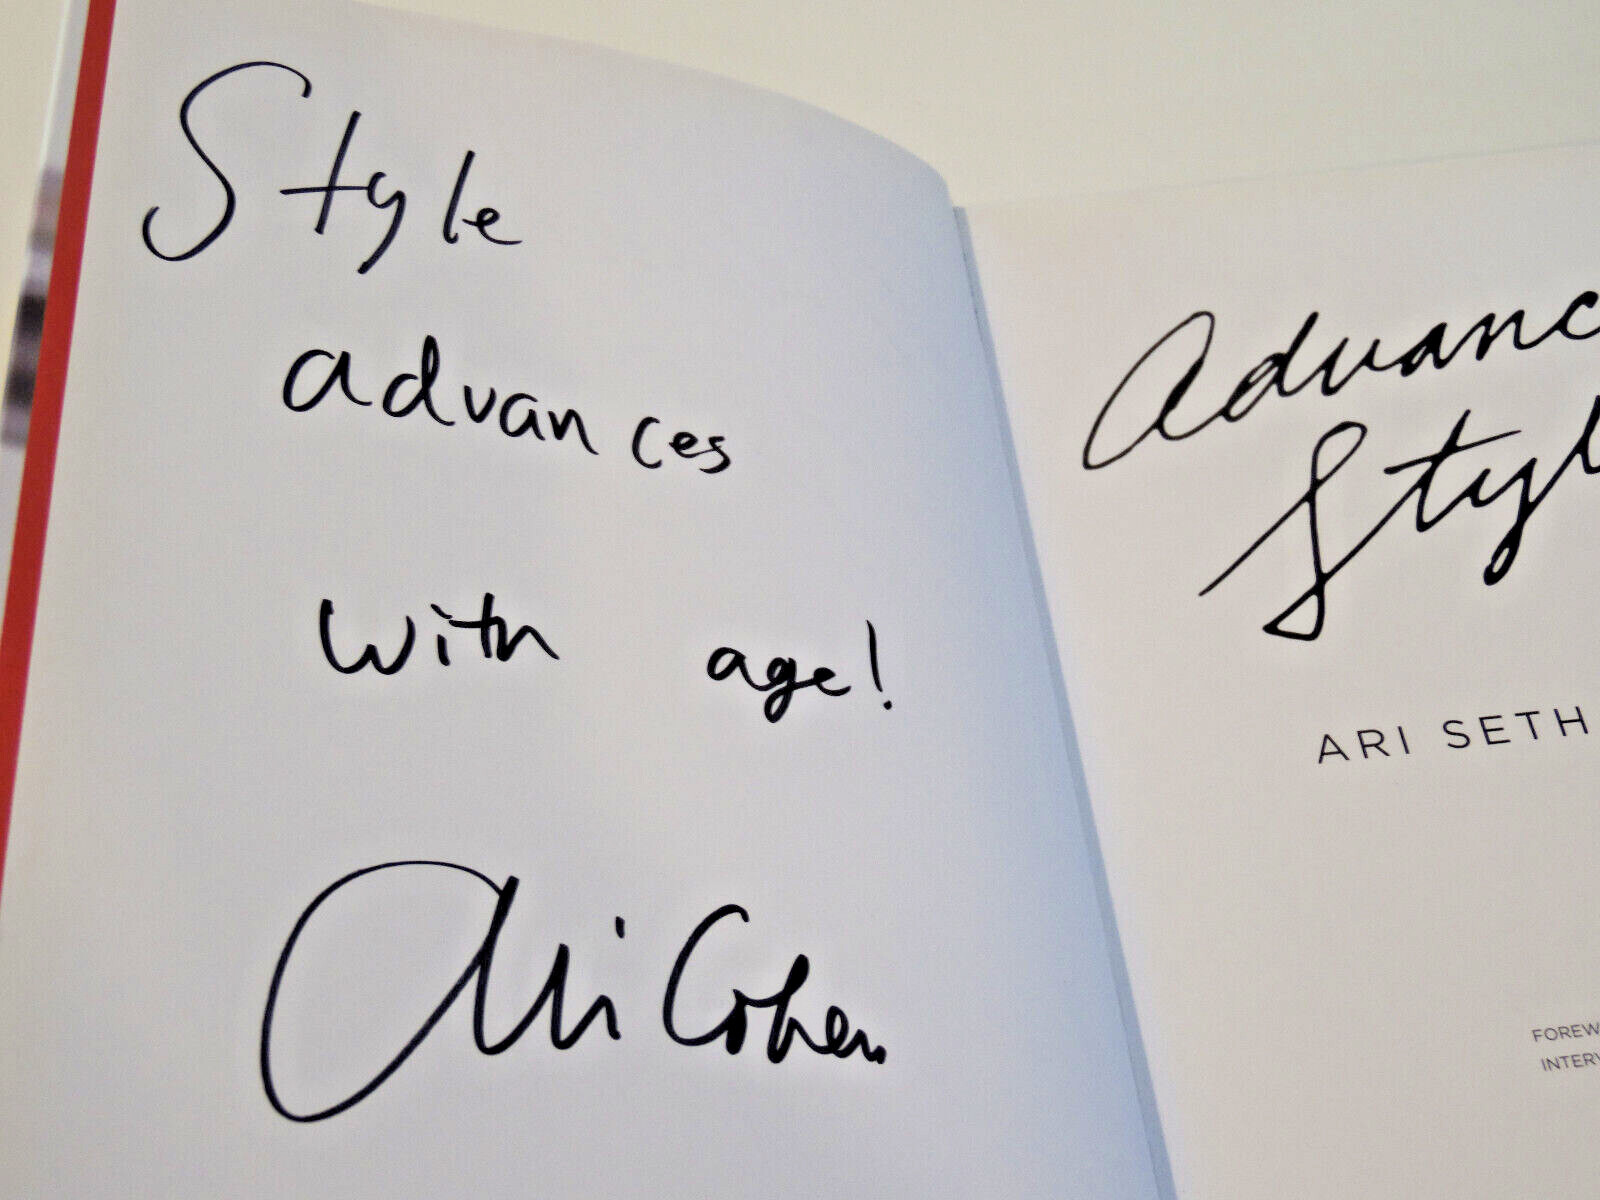 Style
advances
with age!
Ari Cohen
Advanc
Styl
ARI SETH
FOREW
INTERV